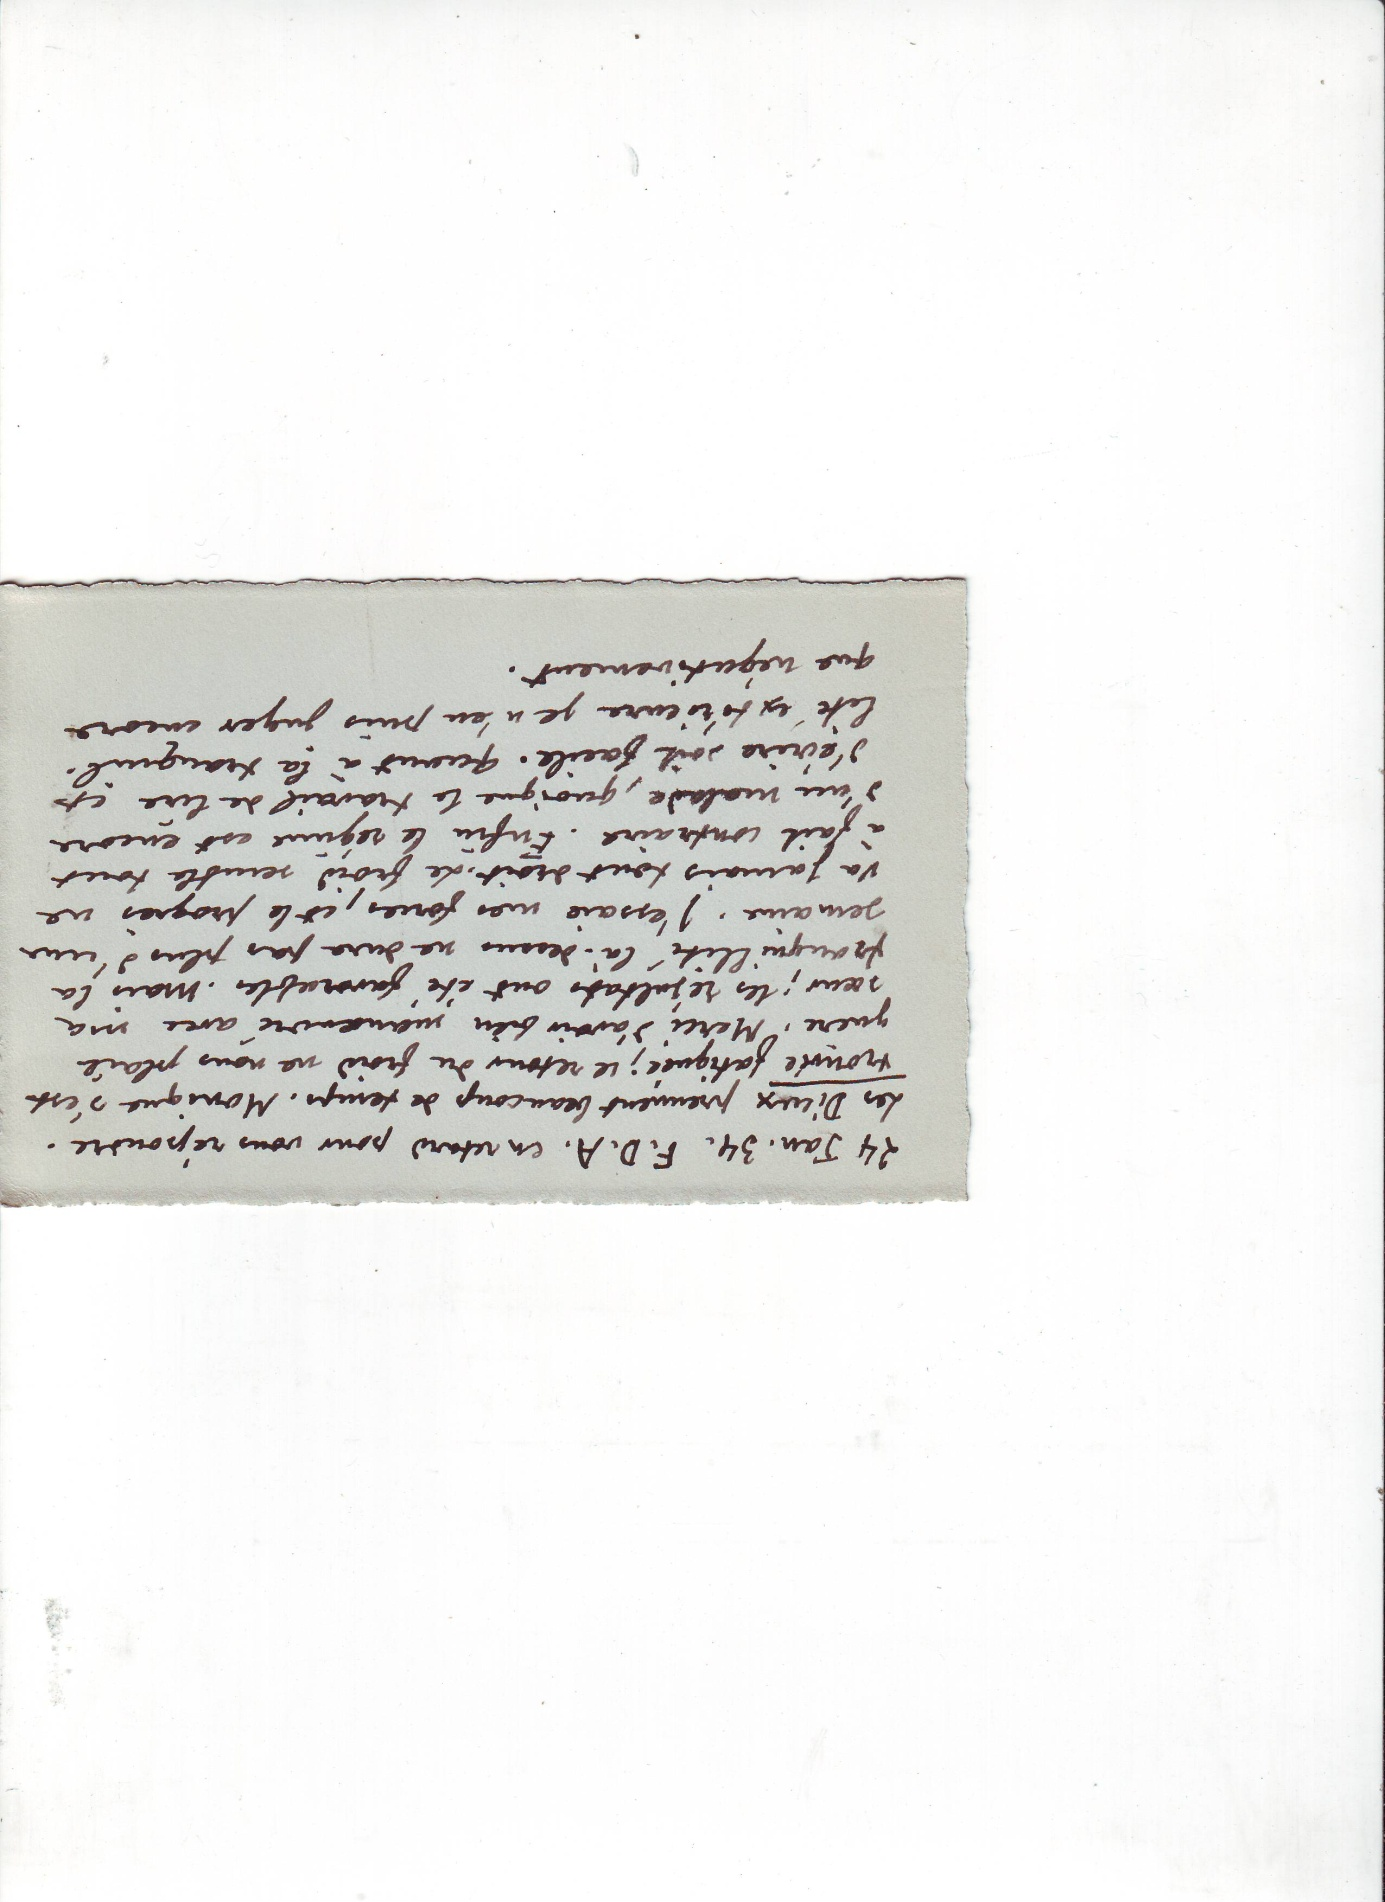 24 Jan. 34. F.D.A. en retard pour vous répondre.
Les Dieux prennent beaucoup de temps. Monique s'est
trouvée fatiguée; le retour du froid ne nous plaît
guère. Merci d'avoir bien manœuvré avec ma
sœur; les résultats ont été favorables. Mais la
tranquillité là-dessus ne dura pas plus d'une
semaine. J'essaie mes forces, et le progrès ne
va jamais tout droit. Le froid semble tout
à fait contraire. Enfin le régime est encore
d'un malade, quoique le travail de lire et
d'écrire soit facile. Quant à la tranquil-
lité extérieure je n'en puis juger encore
que négativement.